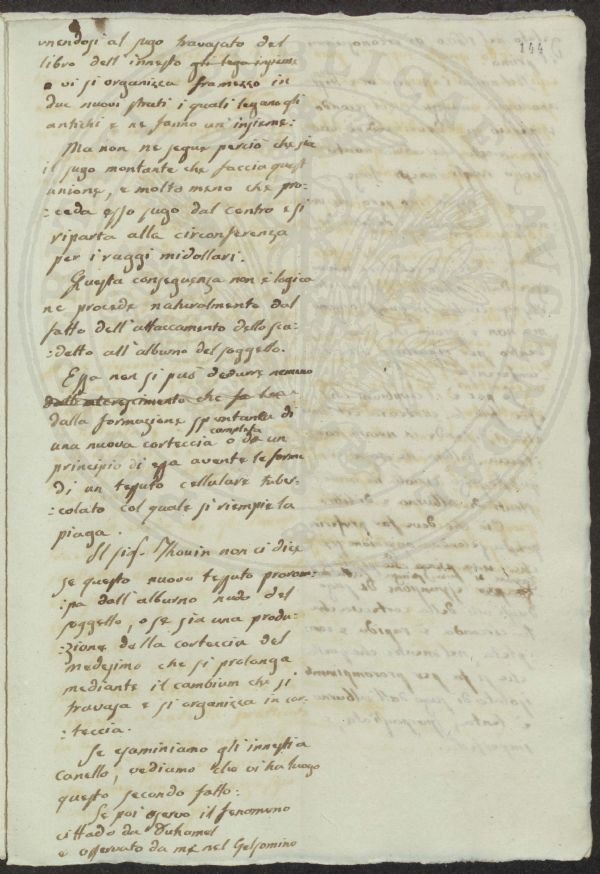 144
unendosi al sugo travasato del
libro dell'innesto gli lega insieme
e vi si organizza framezzo in
due nuovi strati i quali legano gli
antichi e ne fanno un'insieme:
Ma non ne segue perciò che sia
il sugo montante che faccia quest
unione, e molto meno che pro:
:ceda esso sugo dal centro e si
riparta alla circonferenza
per i raggi midollari.
Questa conseguenza non è logica
ne procede naturalmente dal
fatto dell'attaccamento dello scu:
:detto all'alburno del soggetto.
Essa non si può dedurre nemeno
che fa
dalla formazione spontanea di
completa
una nuova corteccia o di un
principio di essa avente le forme
di un tessuto cellulare tuber:
:colato col quale si riempie la
piaga.
Il sig. Thouin non ci dice
se questo nuovo tessuto prorom:
:pa dall'alburno nudo del
soggetto, o se sia una produ:
:zione della corteccia del
medesimo che si prolunga
mediante il cambium che si
travasa e si organizza in cor:
:teccia.
Se esaminiamo gli innesti a
canello, vediamo che vi ha luogo
questo secondo fatto:
Se poi osservo il fenomeno
cittado da Duhamel
e osservato da me nel Gelsomino